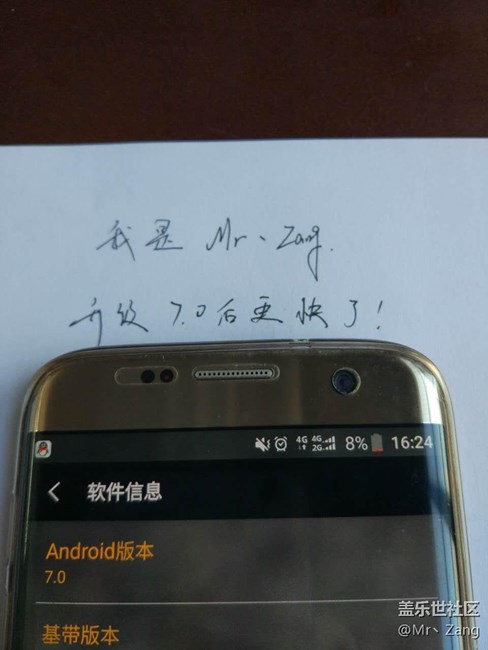 我是 Mr、Zang.
升级7.0后更快了!
4G 4G 2G 8% 16:24
软件信息
Android版本
7.0
基带版本
盖乐世社区
@Mr丶Zang